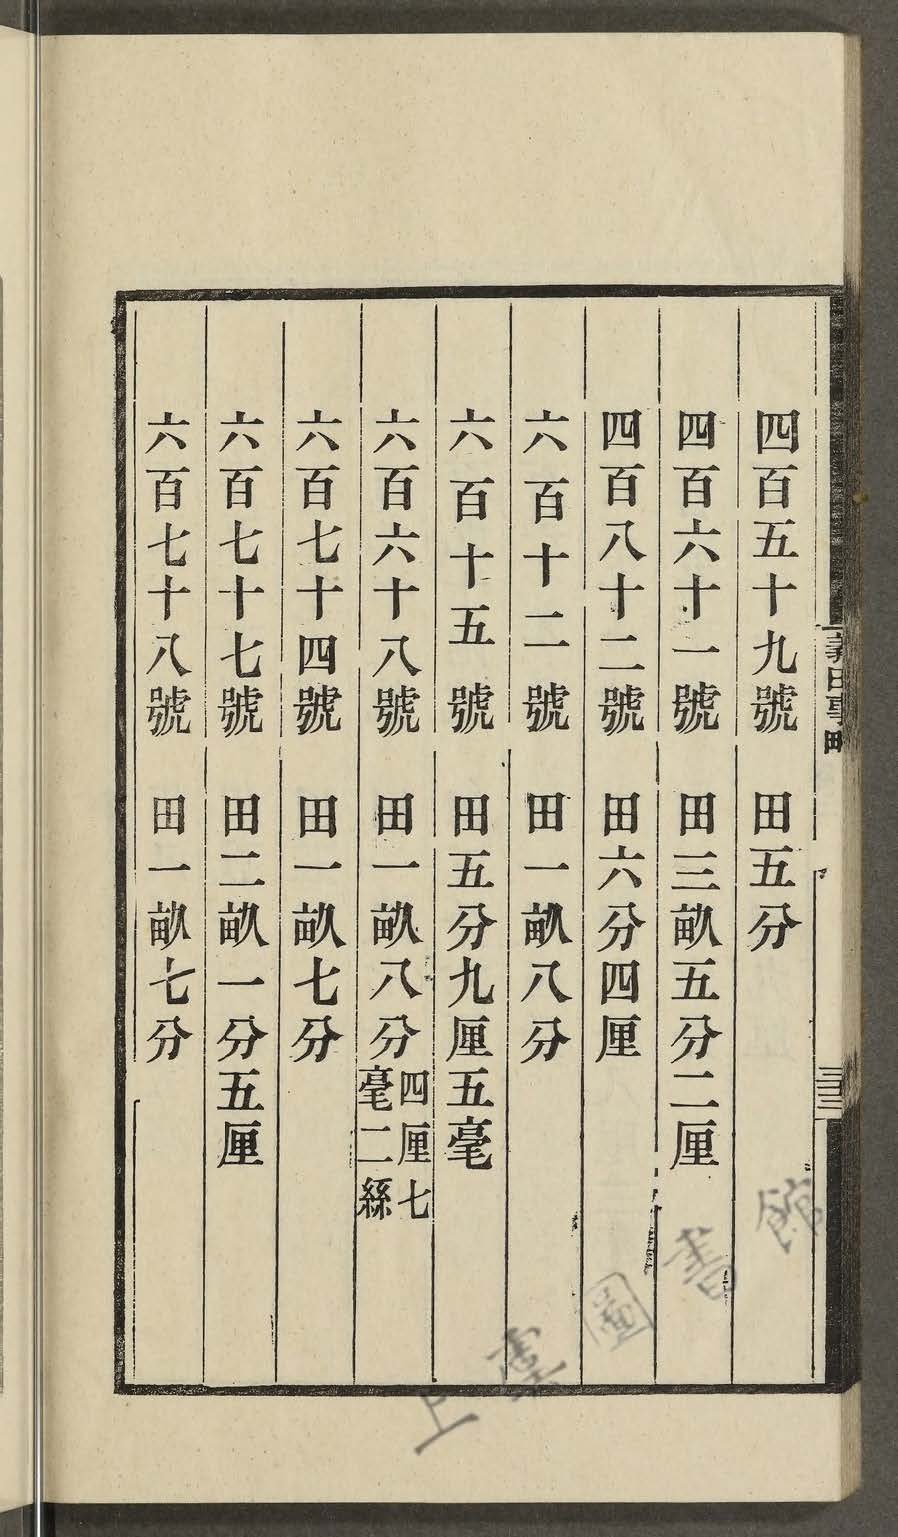 四百五十九號　田五分
四百六十一號　田三畝五分二厘
四百八十二號　田六分四厘
六百十二號　田一畝八分
六百十五號　田五分九厘五毫
六百六十八號　田一畝八分四厘七毫二絲
六百七十四號　田一畝七分
六百七十七號　田二畝一分五厘
六百七十八號　田一畝七分
義田事略
上虞圖書館